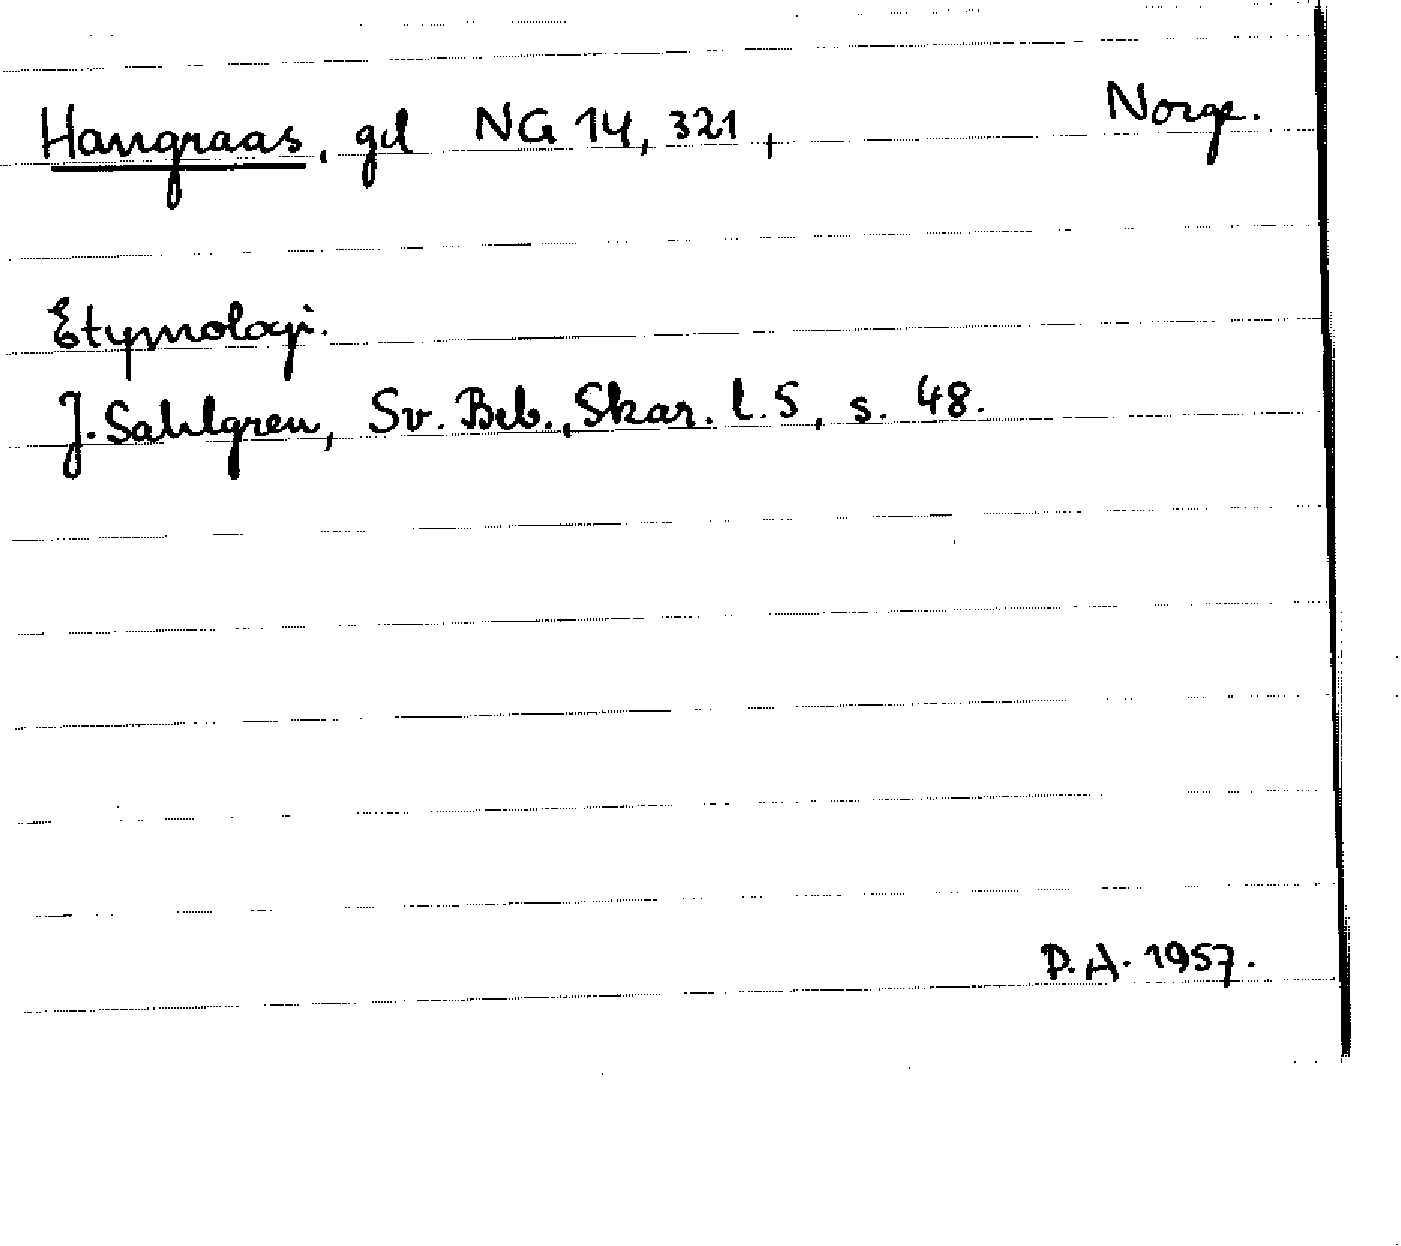 Hangraas, gd NG 14, 321, Norge.
Etymologi.
J. Sahlgren, Sv. Beb., Skar. l. S, s. 48.
P.A. 1957.